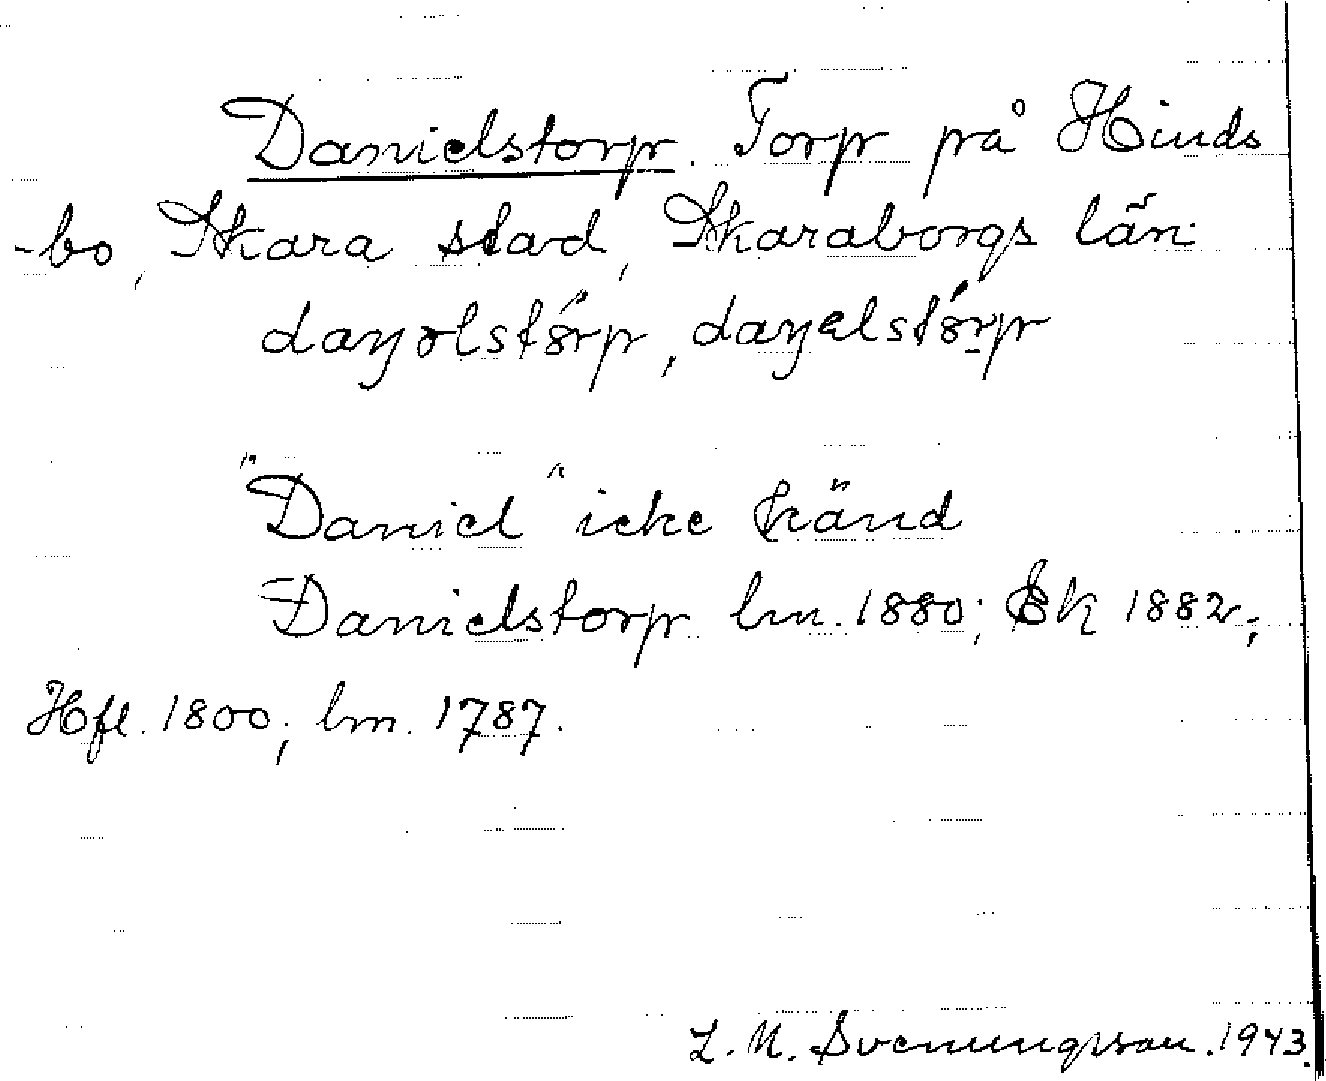 Danielstorp. Torp på Hinds
-bo, Skara stad, Skaraborgs län
daŋəlstörp, daŋəlstörp
"Daniel" icke känd
Danielstorp lm. 1880; Ek 1882;
Hfl. 1800; lm. 1787.
L. M. Svenungsson. 1943.